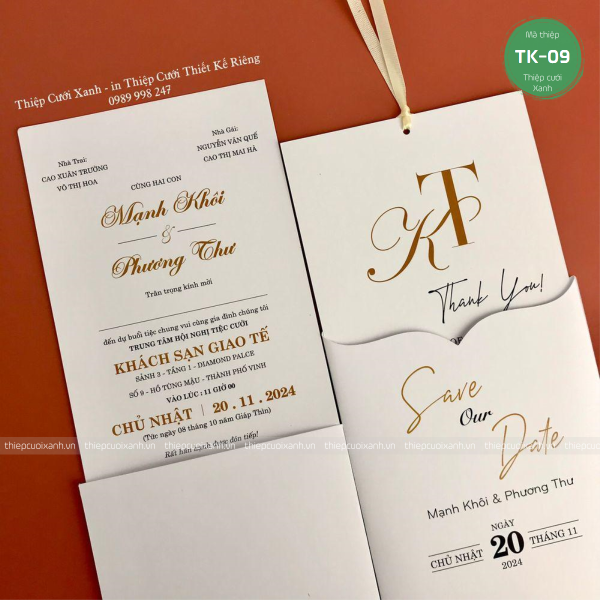 Mã thiệp
TK-09
Thiệp cưới
Xanh
Thiệp Cưới Xanh - in Thiệp Cưới Thiết Kế Riêng
0989 998 247
Nhà Trai:
CAO XUÂN TRƯỜNG
VÕ THỊ HOA
Nhà Gái:
NGUYỄN VĂN QUẾ
CAO THỊ MAI HÀ
CÙNG HAI CON
Mạnh Khôi
&
Phương Thư
Trân trọng kính mời
đến dự buổi tiệc chung vui cùng gia đình chúng tôi
TRUNG TÂM HỘI NGHỊ TIỆC CƯỚI
KHÁCH SẠN GIAO TẾ
SẢNH 3 - TẦNG 1 - DIAMOND PALCE
SỐ 9 - HỒ TÙNG MẬU - THÀNH PHỐ VINH
VÀO LÚC : 11 GIỜ 00
CHỦ NHẬT | 20 . 11 . 2024
(Tức ngày 08 tháng 10 năm Giáp Thìn)
Rất hân hạnh được đón tiếp!
KT
Thank You!
Save
Our
Date
Mạnh Khôi & Phương Thư
NGÀY
CHỦ NHẬT 20 THÁNG 11
2024
thiepcuoixanh.vn thiepcuoixanh.vn thiepcuoixanh.vn thiepcuoixanh.vn thiepcuoixanh.vn thiepcuoixanh.vn